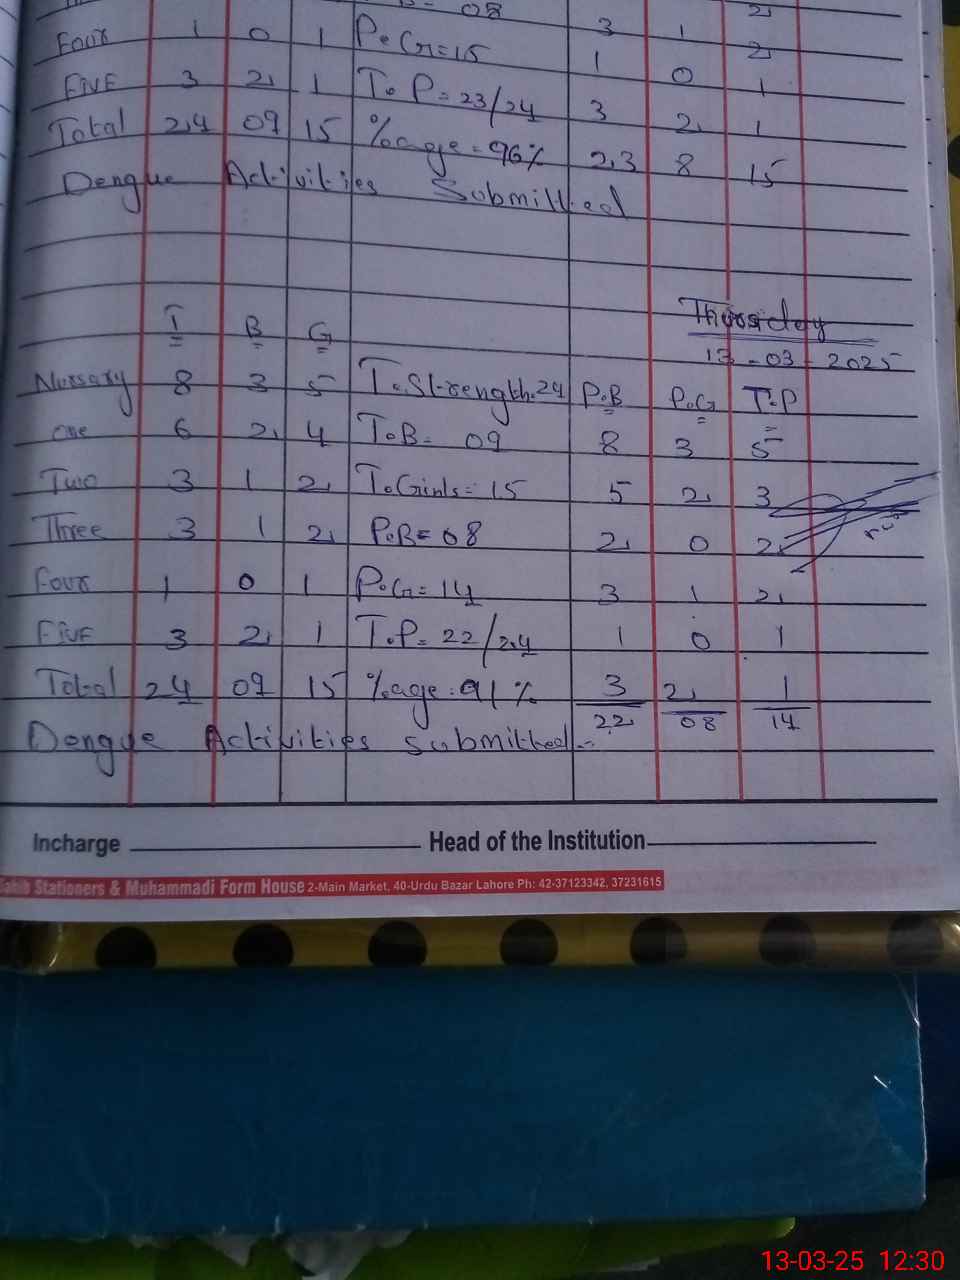 08 3 1 2
Four 1 0 1 P.G=15 1 0 2
Five 3 2 1 T.P=23/24 3 2 1
Total 24 09 15 %age=96% 23 8 15
Dengue Activities Submitted
Thursday
T B G 13-03-2025
Nursary 8 3 5 T.Strength.24 P.B P.G T.P
one 6 2 4 T.B= 09 8 3 5
Two 3 1 2 T.Girls=15 5 2 3
Three 3 1 2 P.B=08 2 0 2
Four 1 0 1 P.G=14 3 1 2
Five 3 2 1 T.P=22/24 1 0 1
Total 24 09 15 %age:91% 3 2 1
22 08 14
Dengue Activities submitted
Incharge Head of the Institution
Stationers & Muhammadi Form House 2-Main Market, 40-Urdu Bazar Lahore Ph: 42-37123342, 37231615
13-03-25 12:30